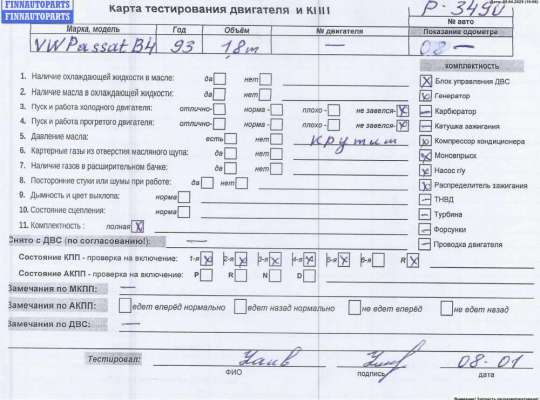 FINNAUTOPARTS
FINNAUTOPARTS
Карта тестирования двигателя и КПП
P-3490
№ авто
Марка, модель Год Объём № двигателя Показание одометра
VW Passat B4 93 1,8 m — 08 —
комплектность
1. Наличие охлаждающей жидкости в масле: да нет
2. Наличие масла в охлаждающей жидкости: да нет
3. Пуск и работа холодного двигателя: отлично- норма - плохо - не завелся- x
4. Пуск и работа прогретого двигателя: отлично- норма - плохо - не завелся- x
5. Давление масла: есть нет крутит
6. Картерные газы из отверстия масляного щупа: да нет
7. Наличие газов в расширительном бачке: да нет
8. Посторонние стуки или шумы при работе: да нет
9. Дымность и цвет выхлопа: норма
10. Состояние сцепления: норма
11. Комплектность полная x
x Блок управления ДВС
x Генератор
— Карбюратор
— Катушка зажигания
x Компрессор кондиционера
x Моновпрыск
x Насос г/у
x Распределитель зажигания
— ТНВД
— Турбина
— Форсунки
— Проводка двигателя
Снято с ДВС (по согласованию!): —
Состояние КПП - проверка на включение: 1-я x 2-я x 3-я x 4-я x 5-я x 6-я R x
Состояние АКПП - проверка на включение: P R N D
Замечания по МКПП: —
Замечания по АКПП: едет вперёд нормально едет назад нормально не едет вперед не едет назад
Замечания по ДВС: —
Тестировал: 08-01
ФИО подпись дата